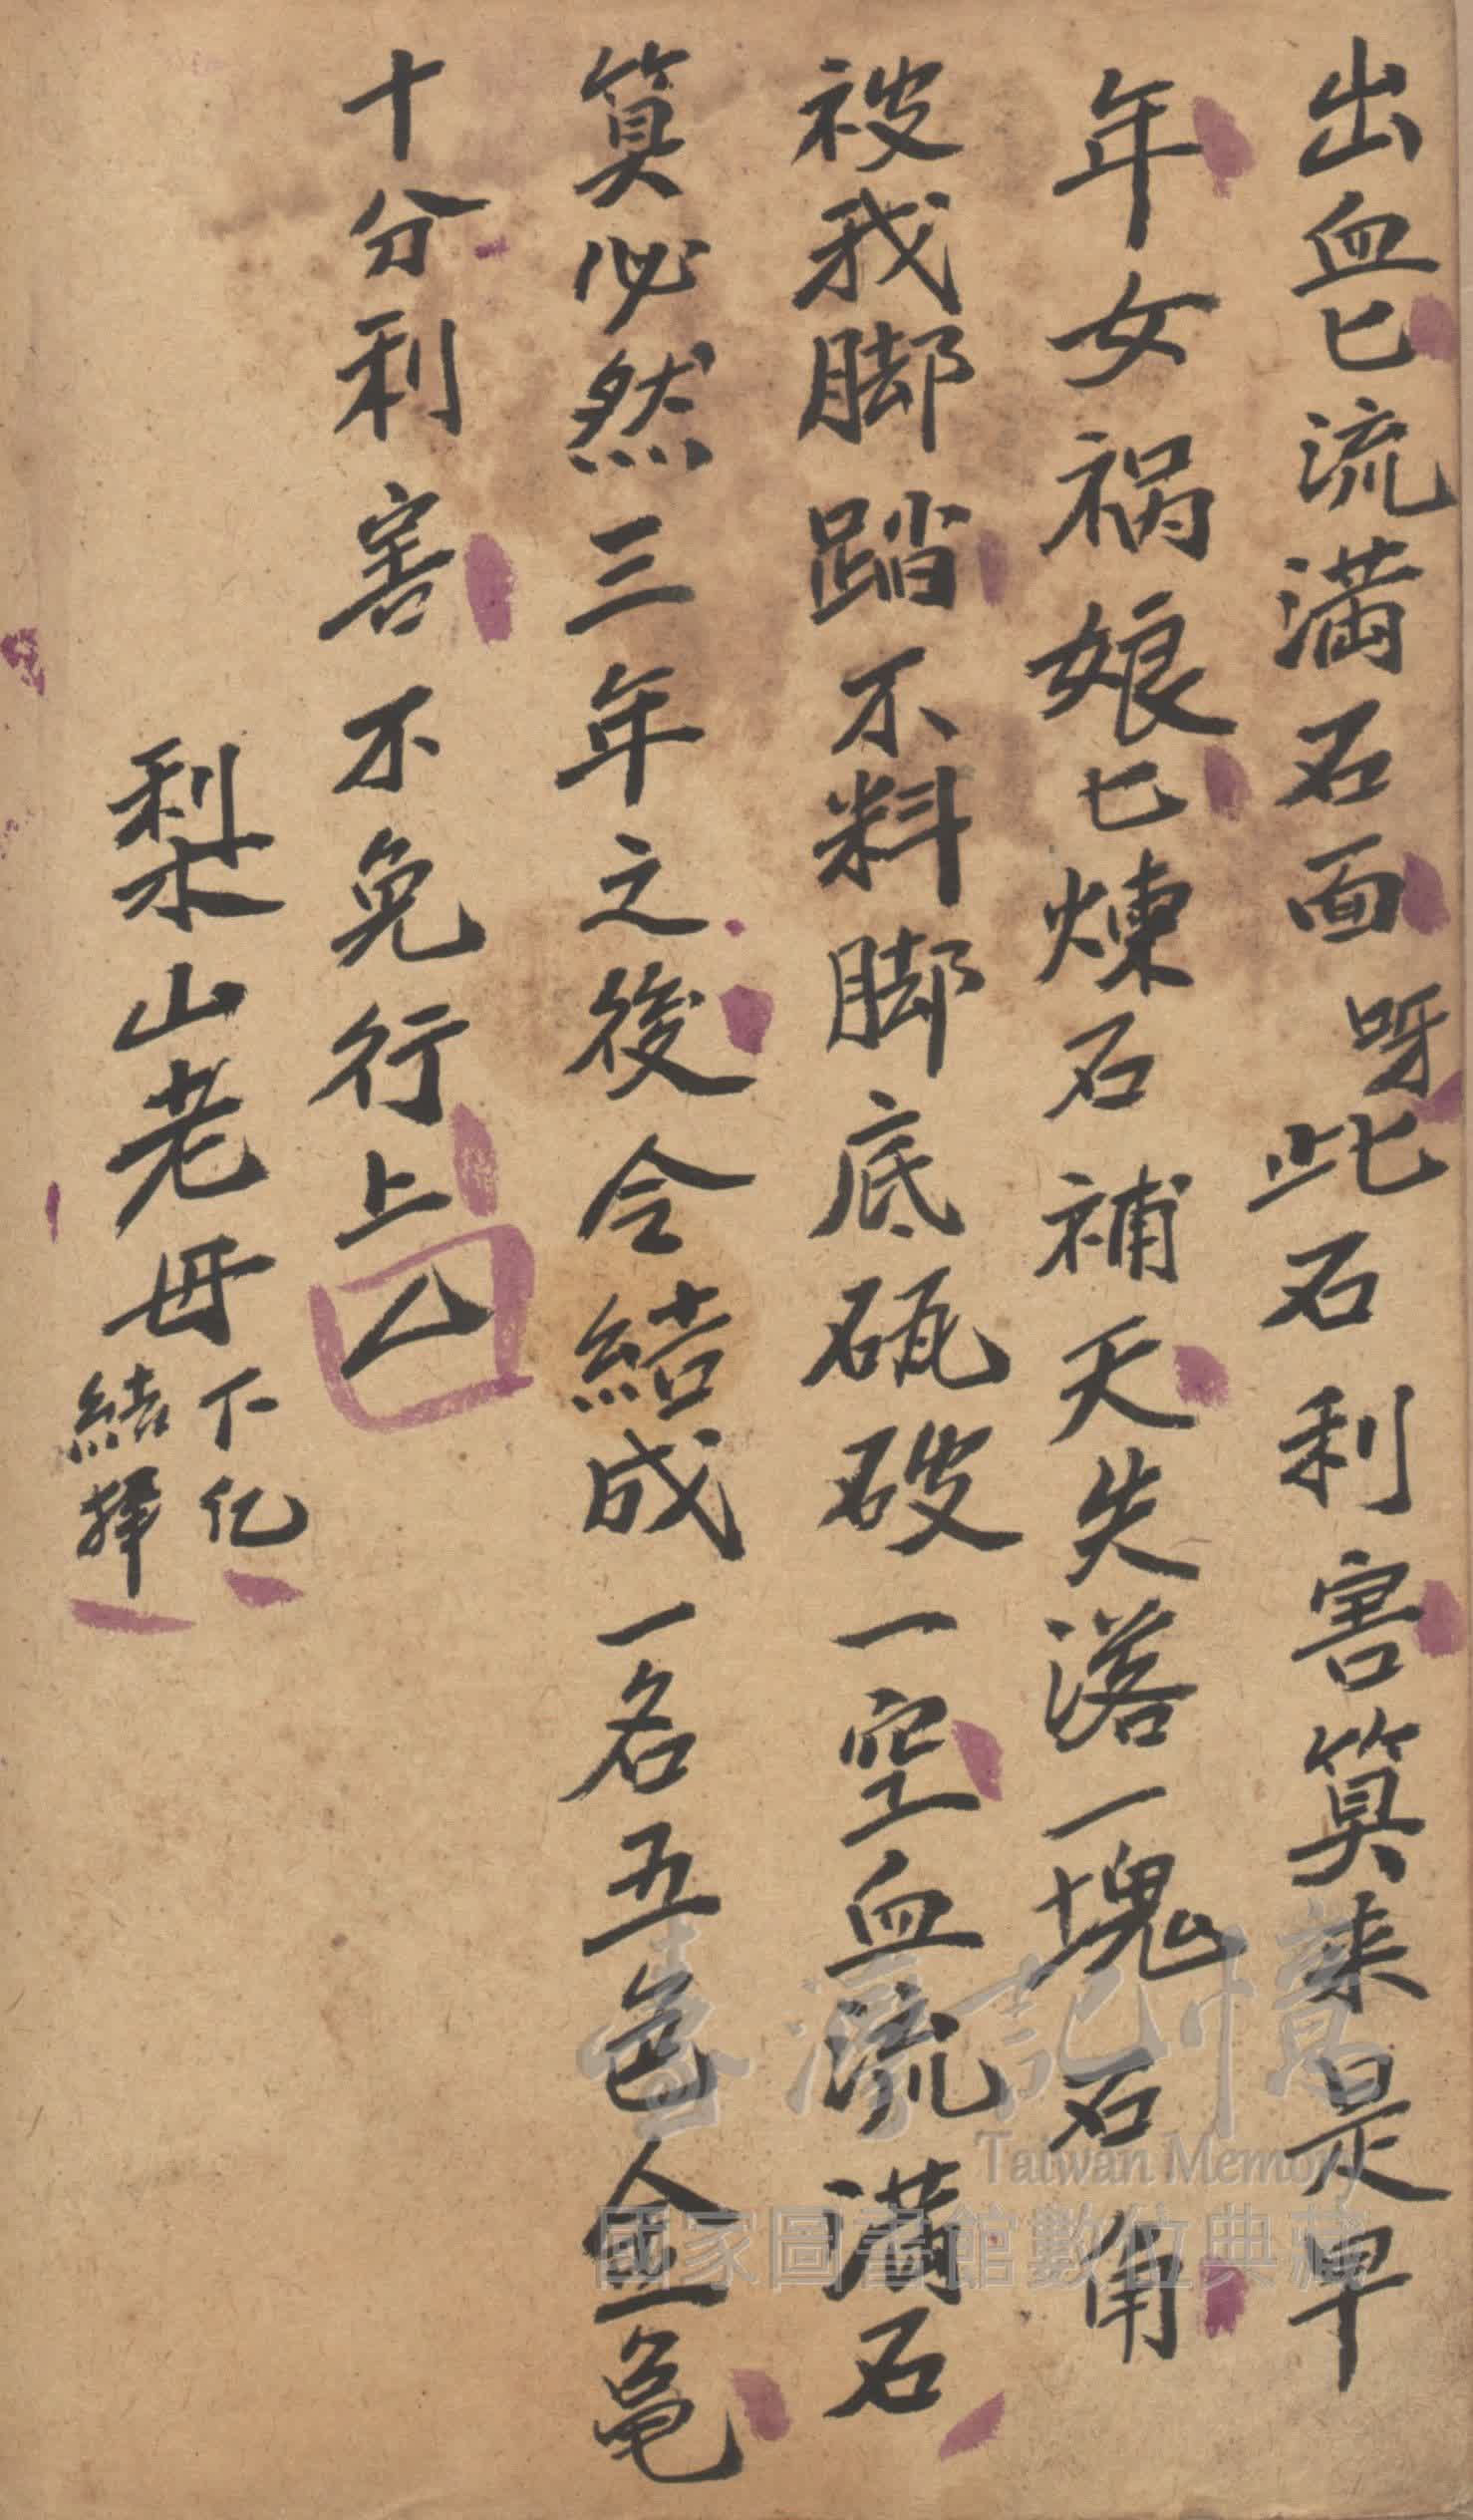 出血已流満石面呀此石利害算来是早
年女祸娘已煉石補天失落一塊石角
被我脚踏不料脚底砙破一空血流满石
算必然三年之後令結成一名五色金亀
十分利害不免行上厶
梨山老母
下亿
結
臺灣記憶
Taiwan Memory
國家圖書館數位典藏